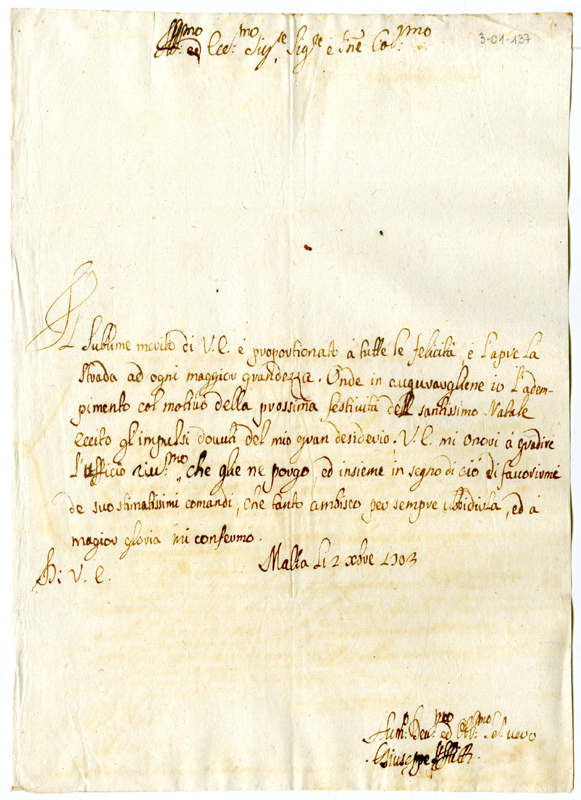 Ill:mo ed Ecc:mo Sig:re Sig:re e Prñe Col:mo
3-01-137
Il Sublime merito di V.E. è proportionato à tutte le felicità e l'apre la
strada ad ogni maggior grandezza. Onde in augurargliene io l'adem-
pimento col motivo della prossima festività del santissimo Natale
eccito gl'impulsi dovuti del mio gran desiderio. V.E. mi onori à gradire
l'ufficio riv:mo che glie ne porgo, ed insieme in segno di ciò di favorirmi
de suoi stimatissimi comandi, che tanto ambisco per sempre ubbidirla, ed à
magior gloria mi confermo.
Di V. E. Malta li 2 xbre 1703
Hum:o Dev:mo ed Obl:mo Se: vero
Giuseppe